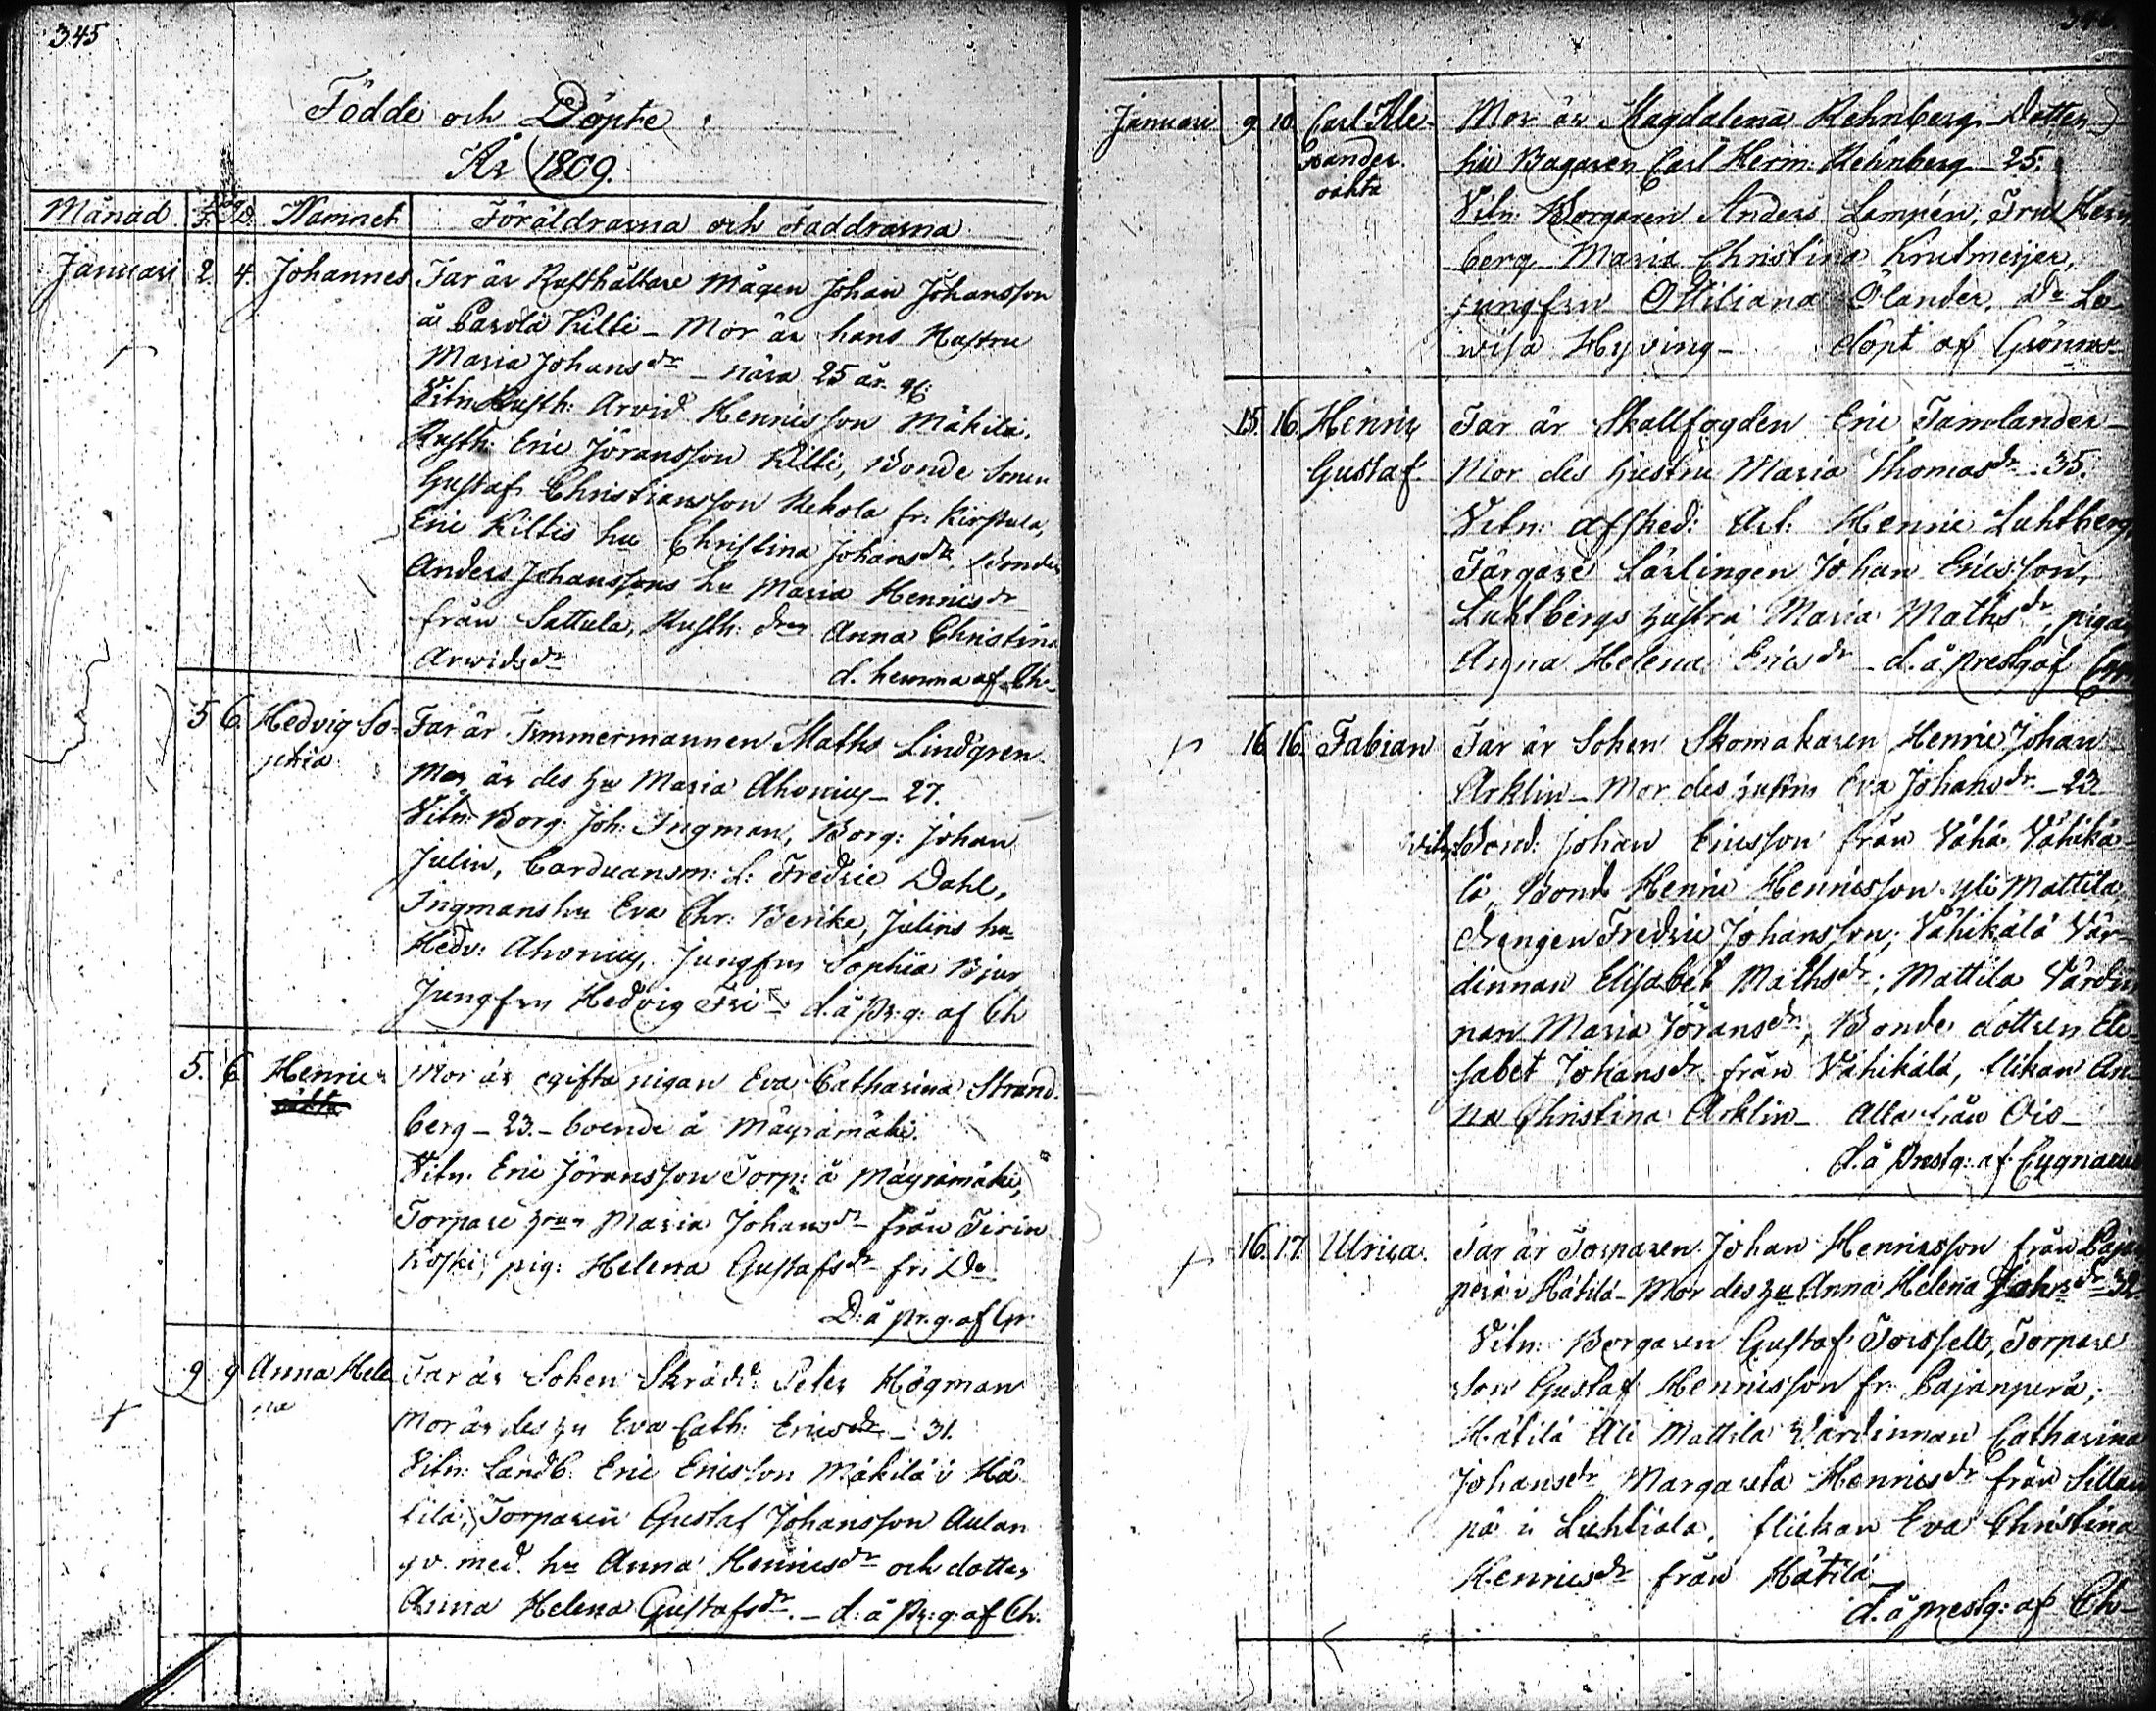 345
Födde och Döpte
År 1809.
Månad F. D. Namnet Föräldrarna och Faddrarna
Januari 2. 4. Johannes Far är Rusthållare Mågen Johan Johansson
å Parola Kilti - Mor är hans Hustru
Maria Johansdr - nära 25 år gl:
Vitn: Rusth: Arvid Henricsson Mäkilä,
Rusth: Eric Jöransson Kilti, Bonde Sonen
Gustaf Christiansson Rekola fr: Kirstula,
Eric Kiltis hu Christina Johansdr, Bonden
Anders Johanssons hu Maria Henricsdr
från Sattula, Rusth: drn Anna Christina
Arvidsdr d. hemma af Ch-
5 6. Hedvig So- Far är Timmermannen Maths Lindgren.
phia Mor är des hu Maria Ahonius - 27.
Vitn: Borg: Joh: Ingman, Borg: Johan
Julin, Carduansm: L: Fredric Dahl,
Ingmans hu Eva Chr: Berike, Julins hu
Hedv: Ahonius, Jungfru Sophia Bjur
Jungfru Hedvig d. å Pr: g: af Ch
5. 6 Henric Mor är ogifta pigan Eva Catharina Strand-
berg - 23 - boende å Mäyrämäki.
Vitn. Eric Jöransson Torp: å Mäyrämäki,
Torpare hrun Maria Johansdr från Tirin
koski, pig: Helena Gustafsdr fr: Do
D: å pr. g. af Gr.
9 9 Anna Hele Far är Soken Skrädd: Peter Högman
na Mor är des hu Eva Cath: Ericsdr - 31.
Vitn: Landb: Eric Ericsson Mäkilä i Hä
tilä, Torparen Gustaf Johansson Aulan
med hu Anna Henricsdr och dotter
Anna Helena Gustafsdr. - d: å Pr: g: af Ch.
Januari 9 10 Carl Ale- Mor är Magdalena Rehnberg - Dotter
xander. hu Bagaren Carl Herm: Rehnberg - 25.
oäkta Vitn: Borgaren Anders Lampén, Fru Hern
berg Maria Christina Knutmeijer,
jungfru Ottiliana Ölander, Dr Lo
wisa Hyving - döpt af Grönmo-
15. 16. Henric Far är Skallfogden Eric Tamlander -
Gustaf. Mor des hustru Maria Thomasdr - 35.
Vitn: afsked: Art: Henric Luhtberg,
Färgare Lärlingen Johan Ericsson,
Luhtbergs hustru Maria Mathsdr, pigan
Anna Helena Ericsdr - d. å prestg af
16 16. Fabian Far är Soken Skomakaren Henric Johan
Arklin - Mor des hustru Eva Johansdr - 23
Vitn: Bond: Johan Ericsson från Vähä Vähikä-
lä, Bond Henric Henricsson yli Mattila,
drengen Fredric Johansson; Vähikälä Vär-
dinnan Elisabet Mathsdr; Mattila Värdin
nan Maria Jöransdr, Bonde dottren Eli-
sabet Johansdr från Vähikälä, flikan An-
na Christina Arklin - Alla från Ois -
d. å Prestg: af Cygnaeus
16. 17. Ulrica. Far är Torparen Johan Henricsson från Paja
perä i Hätilä - Mor des hu Anna Helena Johsdr 32
Vitn: Borgaren Gustaf Forssell, Torpare
son Gustaf Henricsson fr: Pajanperä,
Hätilä Ali Mattila Värdinnan Catharina
Johansdr, Margareta Henricsdr från Sillan
pä i Luhtiala, flickan Eva Christina
Henricsdr från Hätilä
d. å prestg: af Ch-